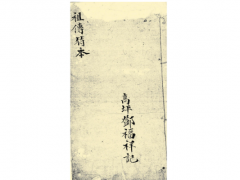 祖傳猜本
高坪鄧福祥記